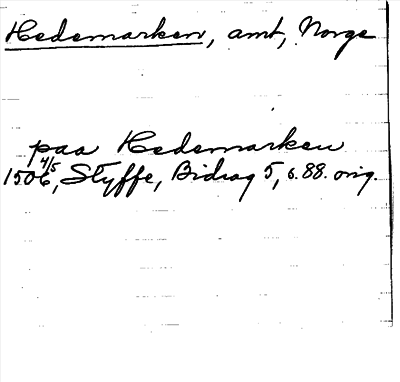 Hedemarken, amt, Norge
paa Hedemarken
1506 4/5, Styffe, Bidrag 5, s. 88. orig.